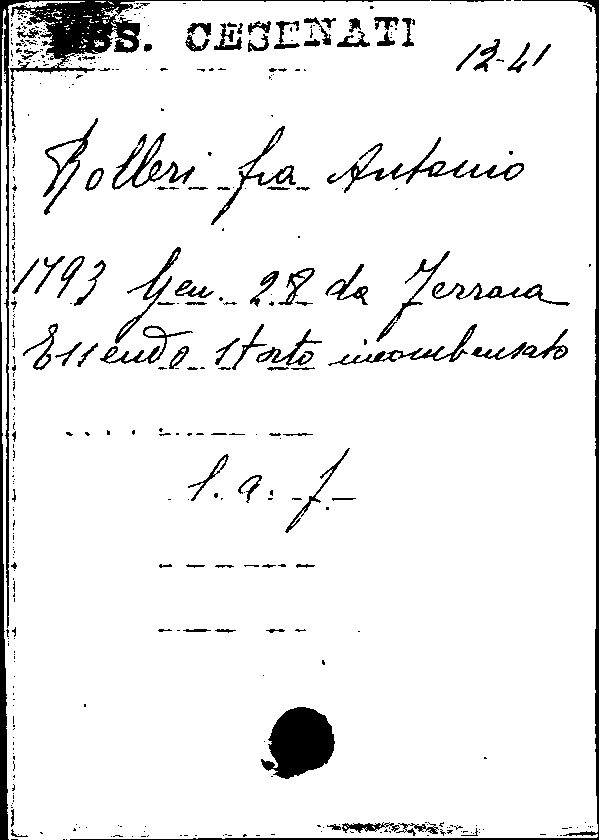 MSS. CESENATI
12-41
Rolleri fra Antonio
1793 Gen. 28 da Ferrara
Essendo stato incombensato
l. a. f.